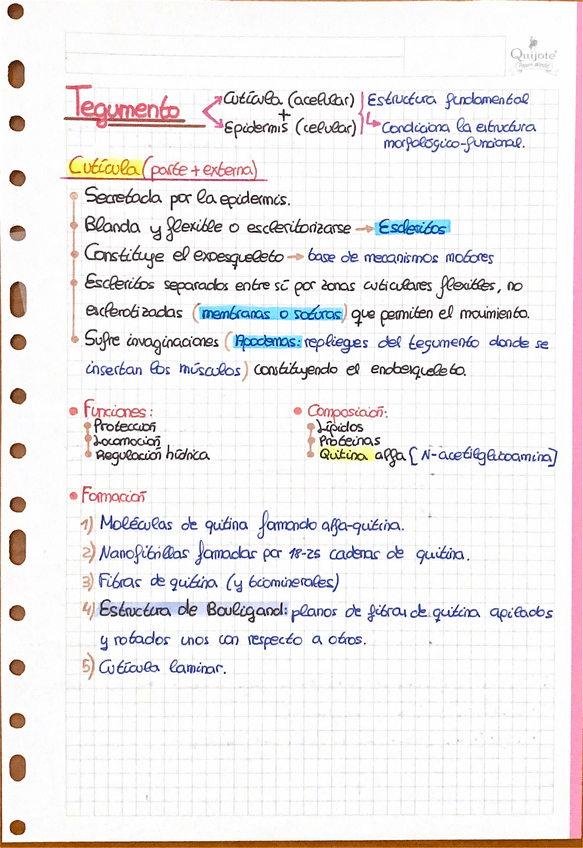 Quijote
Tegumento
Cutícula (acelular)
+
Epidermis (celular)
Estructura fundamental
Condiciona la estructura
morfológico-funcional.
Cutícula (parte + externa)
Secretada por la epidermis.
Blanda y flexible o escleritorizarse → Escleritos
Constituye el exoesqueleto → base de mecanismos motores
Escleritos separados entre sí por zonas cuticulares flexibles, no
esclerotizadas (membranas o soturas) que permiten el movimiento.
Sufre invaginaciones (Apodemas: repliegues del tegumento donde se
insertan los músculos) constituyendo el endoesqueleto.
Funciones:
Protección
Locomoción
Regulación hídrica
Composición:
Lípidos
Proteínas
Quitina alfa [N-acetilglucoamina]
Formación
1) Moléculas de quitina formando alfa-quitina.
2) Nanofibrillas formadas por 18-25 cadenas de quitina.
3) Fibras de quitina (y biominerales)
4) Estructura de Bouligand: planos de fibras de quitina apilados
y rotados unos con respecto a otros.
5) Cutícula laminar.